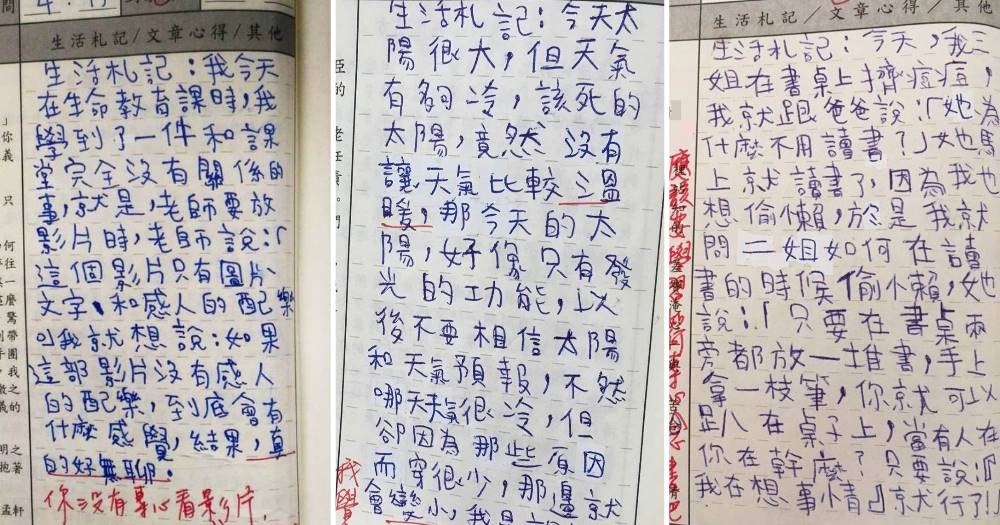 生活札記/文章心得/其他
生活札記：我今天
在生命教育課時，我
學到了一件和課
堂完全沒有關係的
事，就是，老師要放
影片時，老師說：「
這個影片只有圖片、
文字、和感人的配樂
」我就想說：如果
這部影片沒有感人
的配樂，到底會有
什麼感覺，結果，真
的好無聊。
你沒有專心看影片.
生活札記：今天太
陽很大，但天氣
有夠冷，該死的
太陽，竟然沒有
讓天氣比較溫
暖，那今天的太
陽，好像只有發
光的功能，以
後不要相信太陽
和天氣預報，不然
哪天天氣很冷，但
卻因為那些原因
而穿很少，那邊就
會變小，我是
我覺
生活札記／文章心得／其他
生活札記：今天，我三
姐在書桌上擠痘痘，
我就跟爸爸說：「她為
什麼不用讀書？」她馬
上就讀書了，因為我也
想偷懶，於是我就
問二姐如何在讀
書的時候偷懶，她
說：「只要在書桌兩
旁都放一堆書，手上
拿一枝筆，你就可以
趴在桌子上，當有人在
你在幹麼？只要說：『
我在想事情』就行了！」